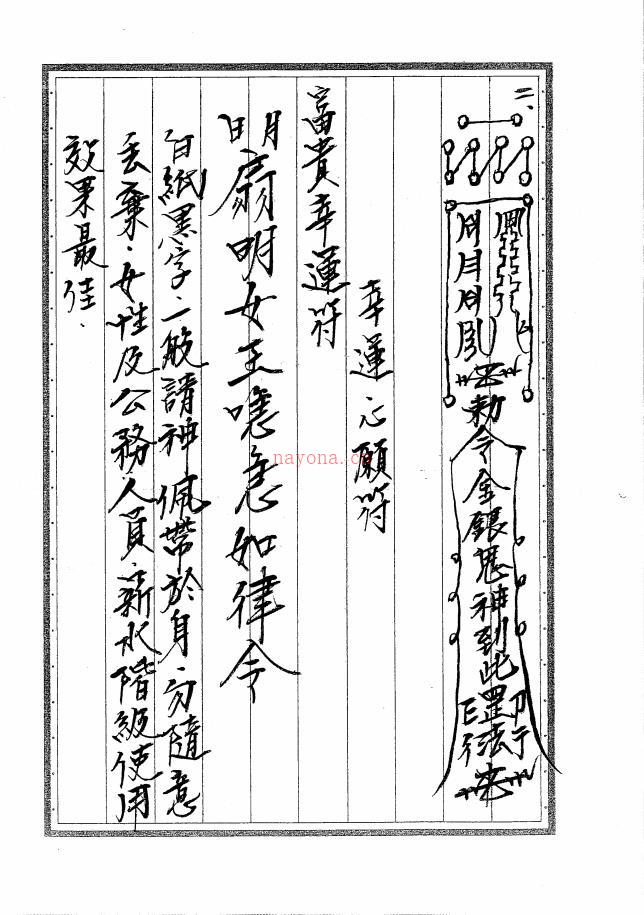 二、
敕令金銀鬼神到此罡法
幸運心願符
富貴幸運符
明月扇明女王喼急如律令
白紙黑字、一般請神佩帶於身、勿隨意
丟棄、女性及公務人員、薪水階級使用
效果最佳．
nayona.cn